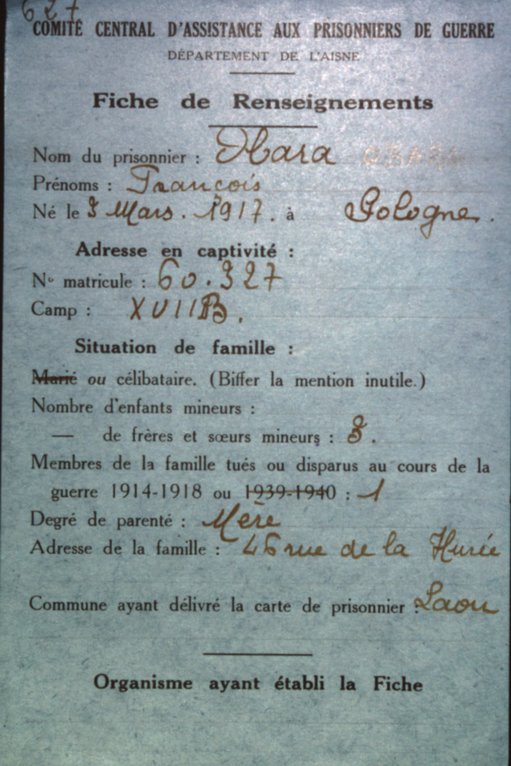 627
COMITÉ CENTRAL D'ASSISTANCE AUX PRISONNIERS DE GUERRE
DÉPARTEMENT DE L'AISNE
Fiche de Renseignements
Nom du prisonnier :
Prénoms : François
Né le 3 Mars. 1917. à Pologne.
Adresse en captivité :
No matricule : 60.327
Camp : XVII B.
Situation de famille :
Marié ou célibataire. (Biffer la mention inutile.)
Nombre d'enfants mineurs :
— de frères et sœurs mineurs : 3.
Membres de la famille tués ou disparus au cours de la
guerre 1914-1918 ou 1939-1940 : 1
Degré de parenté : Mère
Adresse de la famille : 46 rue de la Hurée
Commune ayant délivré la carte de prisonnier : Laon
Organisme ayant établi la Fiche